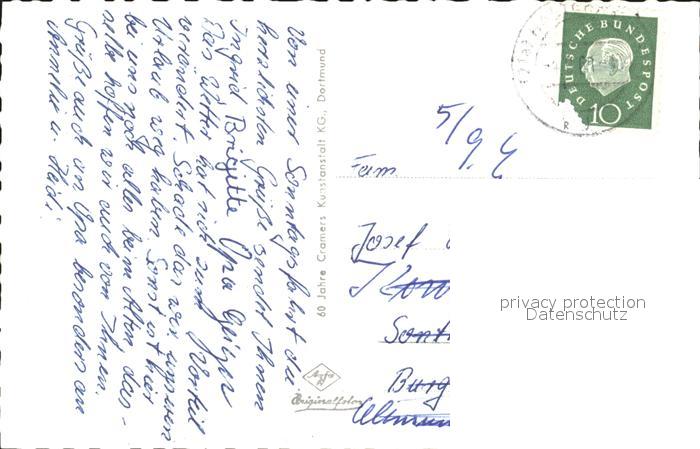 Von einer Sonntagsfahrt die
herzlichsten Grüße sendet Ihnen
Ingrid Brigitte Opa Geiger
Das Wetter hat sich zum Vorteil
verändert. Schade das wir unseren
Urlaub weg haben. Sonst ist hier
bei uns noch alles beim Alten, das-
selbe hoffen wir auch von Ihnen.
Grüß auch an Opa besonders an
60 Jahre Cramers Kunstanstalt KG., Dortmund
Agfa
Originalfoto
DEUTSCHE BUNDESPOST
10
5/9
Fam.
Josef
Sont
Burg
privacy protection
Datenschutz